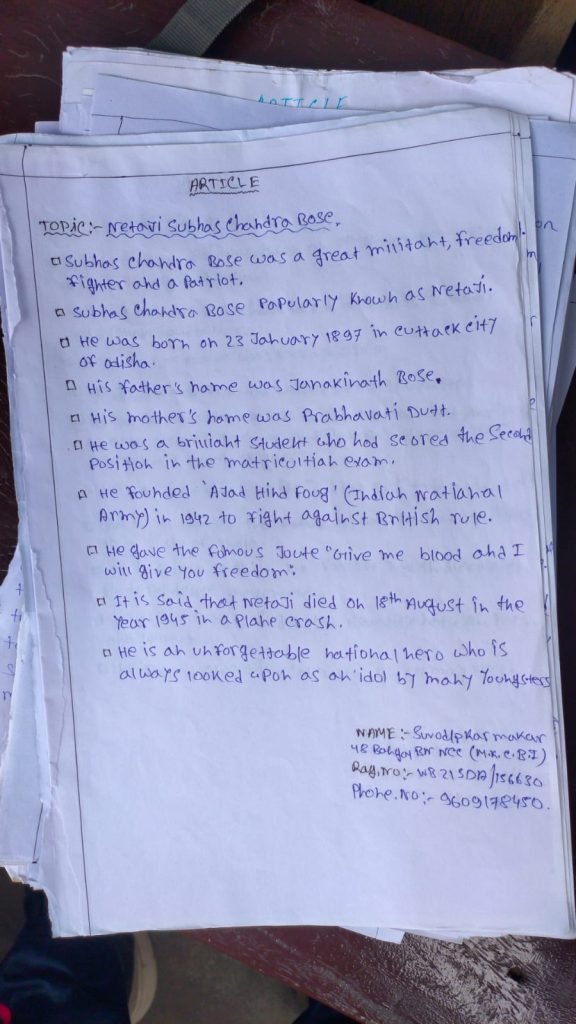 ARTICLE
ARTICLE
TOPIC:- Netaji Subhas Chandra Bose.
Subhas Chandra Bose was a great militant, freedom-
fighter and a Patriot.
Subhas Chandra Bose Popularly Known as Netaji.
He was born on 23 January 1897 in cuttack city
of odisha.
His father's name was Janakinath Bose.
His mother's name was Prabhavati Dutt.
He was a brilliant student who had scored the Second
Position in the matricultian exam.
He founded 'Ajad Hind Foug' (Indian National
Army) in 1942 to fight against British rule.
He gave the famous Joute "Give me blood and I
will give you freedom".
It is said that Netaji died on 18th August in the
year 1945 in a plane crash.
He is an unforgettable national hero who is
always looked upon as an idol by many Youngsters
NAME:- Suvadip Karmakar
48 Bengal BN NCC (M.K.C.B.I)
Rag.No:- WB21SDA/156630
Phone.No:- 9609178450.